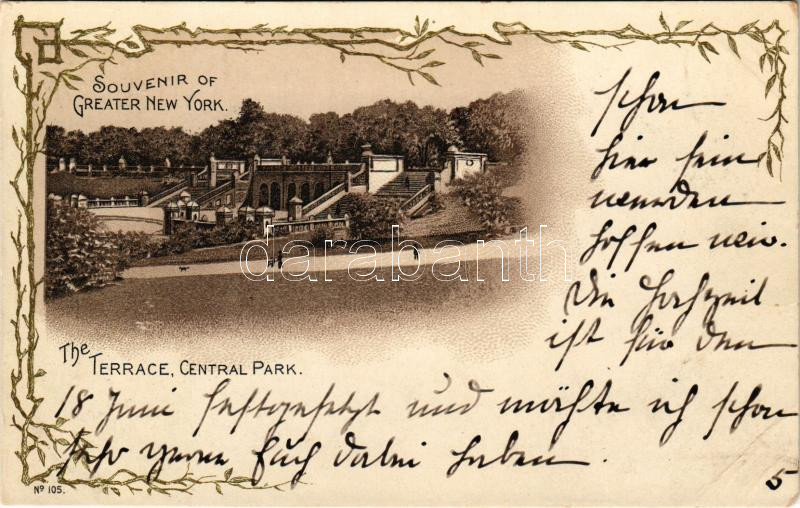 SOUVENIR OF
GREATER NEW YORK.
darabanth
The TERRACE, CENTRAL PARK.
schon
hier sein
werden
hoffen wir.
Die Hochzeit
ist für den
18 Juni festgesetzt und möchte ich schon
sehr gerne Euch dabei haben
5
Nº 105.